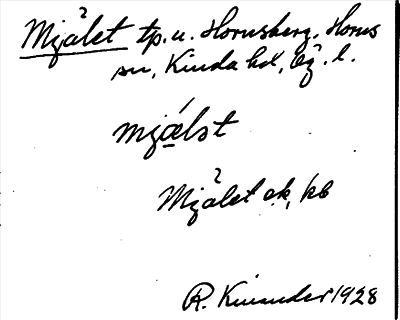 Mjålet tp. u. Hornsberg, Horns
sn, Kinda hd, Ög. l.
mjælst
Mjålet ek, kb
R. Kinander 1928